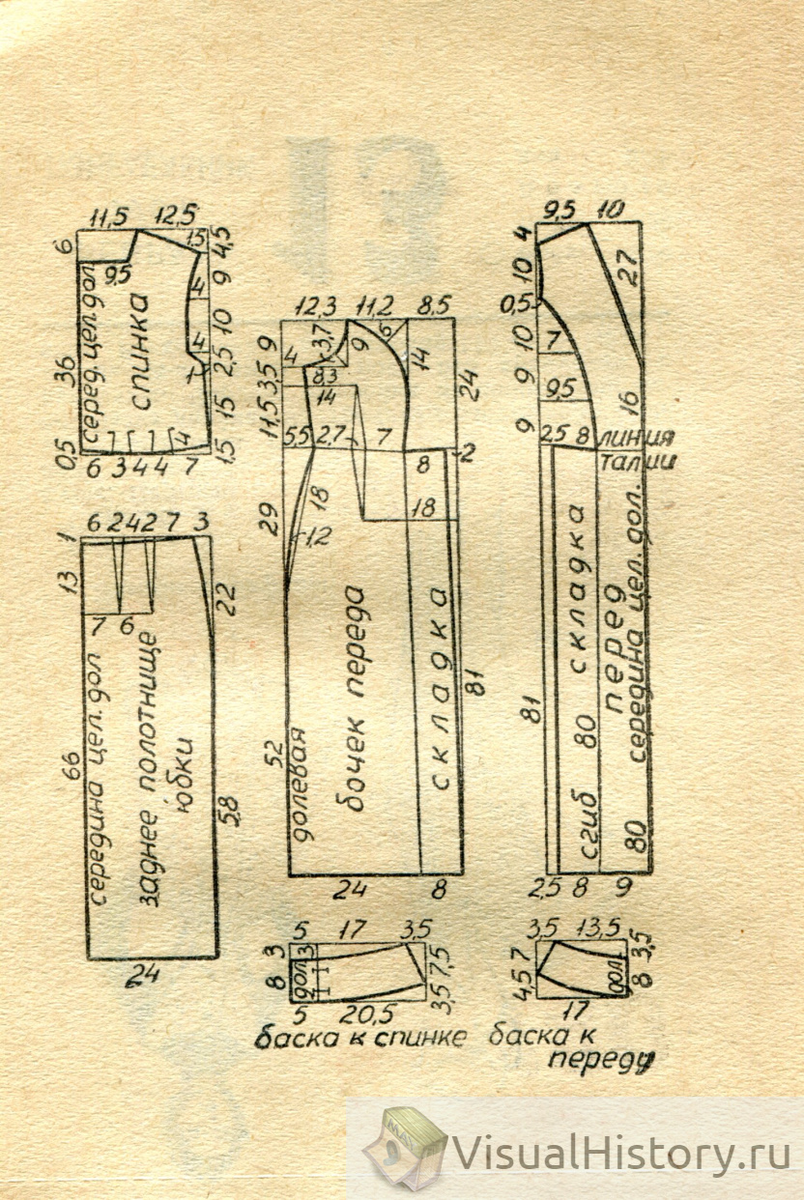 11,5 12,5
6 9,5 1,5 4,5
4 9
серед. цел. дол
спинка
36 10
4 2,5
1 15
4
0,5 6 3 4 4 7 1,5
6 2 4 2 7 3
1
13 22
7 6
середина цел. дол
заднее полотнище
юбки
66 58
24
12,3 11,2 8,5
9 3,7 9 6
4 14
3,5 8,3 24
14
11,5 5,5 2,7 7
8 2
29 18 18
1,2
бочек переда
складка
долевая
52 81
24 8
9,5 10
4
10 27
0,5
10 7
9 9,5 16
9 2,5 8 линия
талии
складка
перед
середина цел. дол.
81 сгиб 80 80
2,5 8 9
5 17 3,5
3 3 7,5
8 дол 3,5
5 20,5
баска к спинке
3,5 13,5
7 3,5
4,5 дол 8
17
баска к
переду
VisualHistory.ru